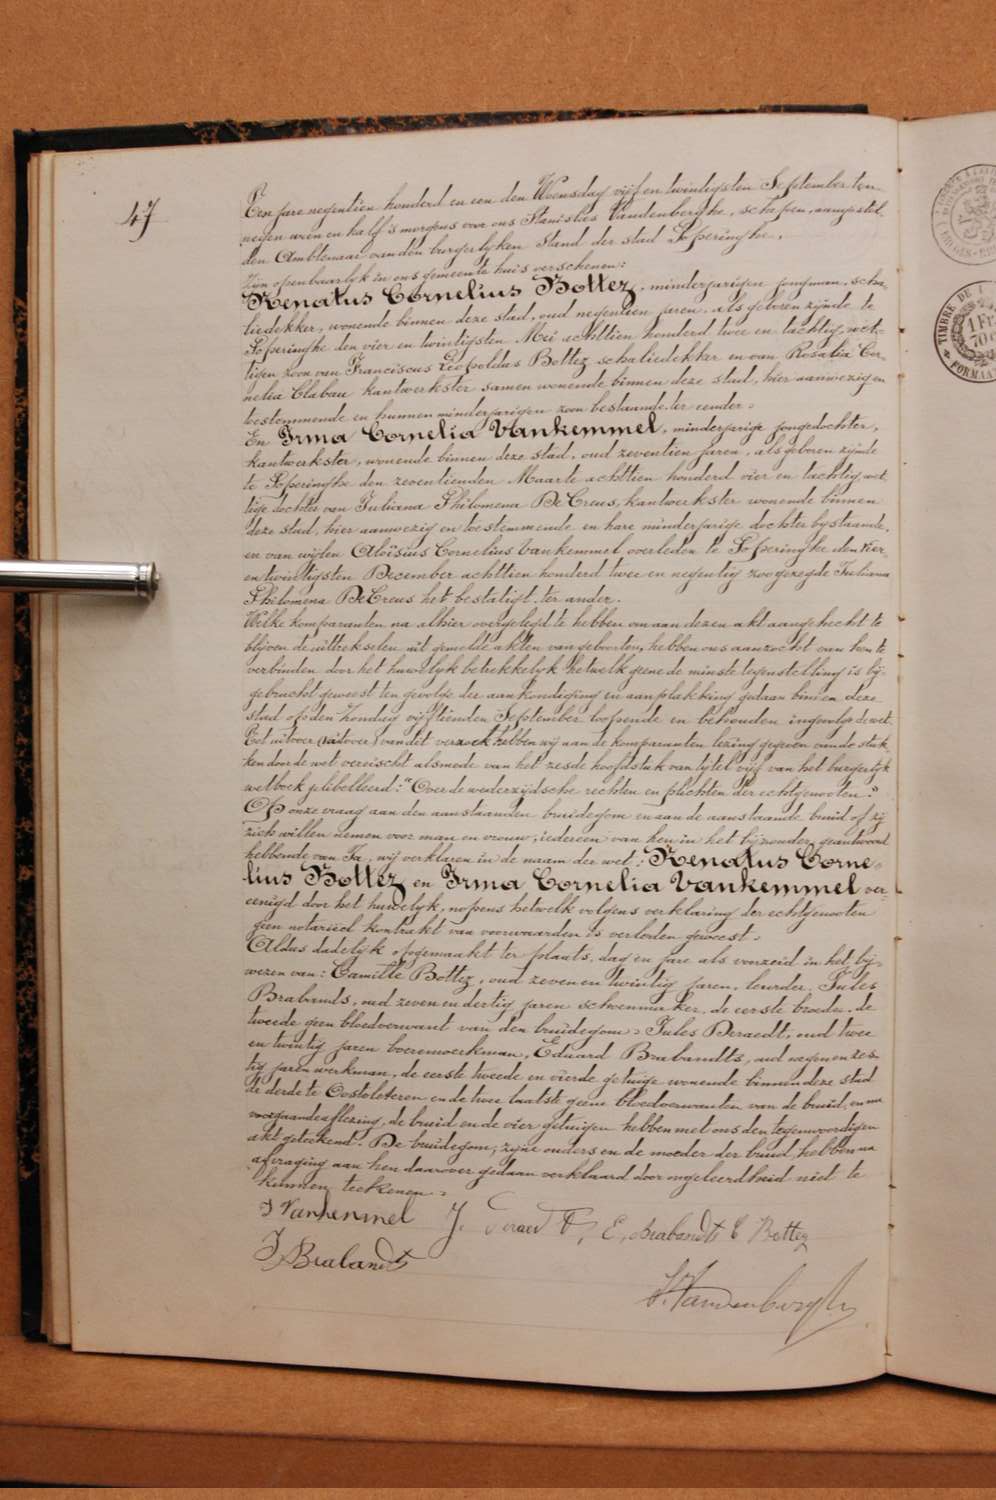 47
Ten jare negentien honderd en een den Woensdag vijf en twintigsten September ten
negen uren en half 's morgens voor ons Stanislas Vandenberghe, schepen, aangestel-
den Ambtenaar van den burgerlyken Stand der stad Poperinghe,
zijn openbaarlyk in ons gemeente huis verschenen:
Renatus Cornelius Bottez, minderjarigen jongman, scha-
liedekker, wonende binnen deze stad, oud negentien jaren, als geboren zijnde te
Poperinghe den vier en twintigsten Mei achttien honderd twee en tachtig, wet-
tigen zoon van Franciscus Leopoldus Bottez schaliedekker en van Rosalia Cor-
nelia Clabau kantwerkster samen wonende binnen deze stad, hier aanwezig en
toestemmende en hunnen minderjarigen zoon bestaande ter eender.
En Irma Cornelia Vankemmel, minderjarige jongedochter,
kantwerkster, wonende binnen deze stad, oud zeventien jaren, als geboren zijnde
te Poperinghe den zeventienden Maarte achttien honderd vier en tachtig, wet-
tige dochter van Juliana Philomena DeCreus, kantwerkster wonende binnen
deze stad, hier aanwezig en toestemmende en hare minderjarige dochter bystaande,
en van wijlen Aloïsius Cornelius Vankemmel overleden te Poperinghe den vier
en twintigsten December achttien honderd twee en negentig zoo gezegde Juliana
Philomena DeCreus het bestatigt, ter ander.
Welke komparanten na alhier overgelegd te hebben om aan dezen akt aangehecht te
blijven de uittrekselen uit gemelde akten van geboorten, hebben ons aanzocht van hen te
verbinden door het huwelyk betrekkelyk hetwelk geene de minste tegenstelling is bij-
gebracht geweest ten gevolge der aankondiging en aanplakking gedaan binnen deze
stad op den Zondag vijftienden September loopende en behouden ingevolge de wet.
Tot uitvoer (uitvoer) van dit verzoek hebben wij aan de komparanten lezing gegeven van de stuk-
ken door de wet vereischt alsmede van het zesde hoofdstuk van tytel vijf van het burgerlyk
wetboek gelibelleerd: "Over de wederzijdsche rechten en plichten der echtgenooten."
Op onze vraag aan den aanstaanden bruidegom en aan de aanstaande bruid of zij
zich willen nemen voor man en vrouw, iedereen van hen in het bijzonder geantwoord
hebbende van Ja, wij verklaren in de naam der wet: Renatus Corne-
lius Bottez en Irma Cornelia Vankemmel ver-
eenigd door het huwelyk, nopens hetwelk volgens verklaring der echtgenooten
geen notarieel kontrakt van voorwaarden is verleden geweest.
Aldus dadelyk opgemaakt ter plaats, dag en jare als voorzeid in het bij-
wezen van: Camille Bottez, oud zeven en twintig jaren, leurder, Jules
Brabands, oud zeven en dertig jaren schoenmaker, de eerste broeder, de
tweede geen bloedverwant van den bruidegom, Jules Deraedt, oud twee
en twintig jaren boerenwerkman, Eduard Brabandts, oud negen en zes-
tig jaren werkman, de eerste tweede en vierde getuige wonende binnen deze stad
de derde te Oostvleteren en de twee laatste geene bloedverwanten van de bruid, en na
voorgaande aflezing, de bruid en de vier getuigen hebben met ons den tegenwoordigen
akt geteekend. De bruidegom, zijne ouders en de moeder der bruid, hebben na
afvraging aan hen daarover gedaan verklaard door ongeleerdheid niet te
kunnen teekenen.
I Vankemmel J. Deraedt E. Brabandts C Bottez
J. Brabandts
S. Vandenberghe
TIMBRE DE
1 Fr
70 C